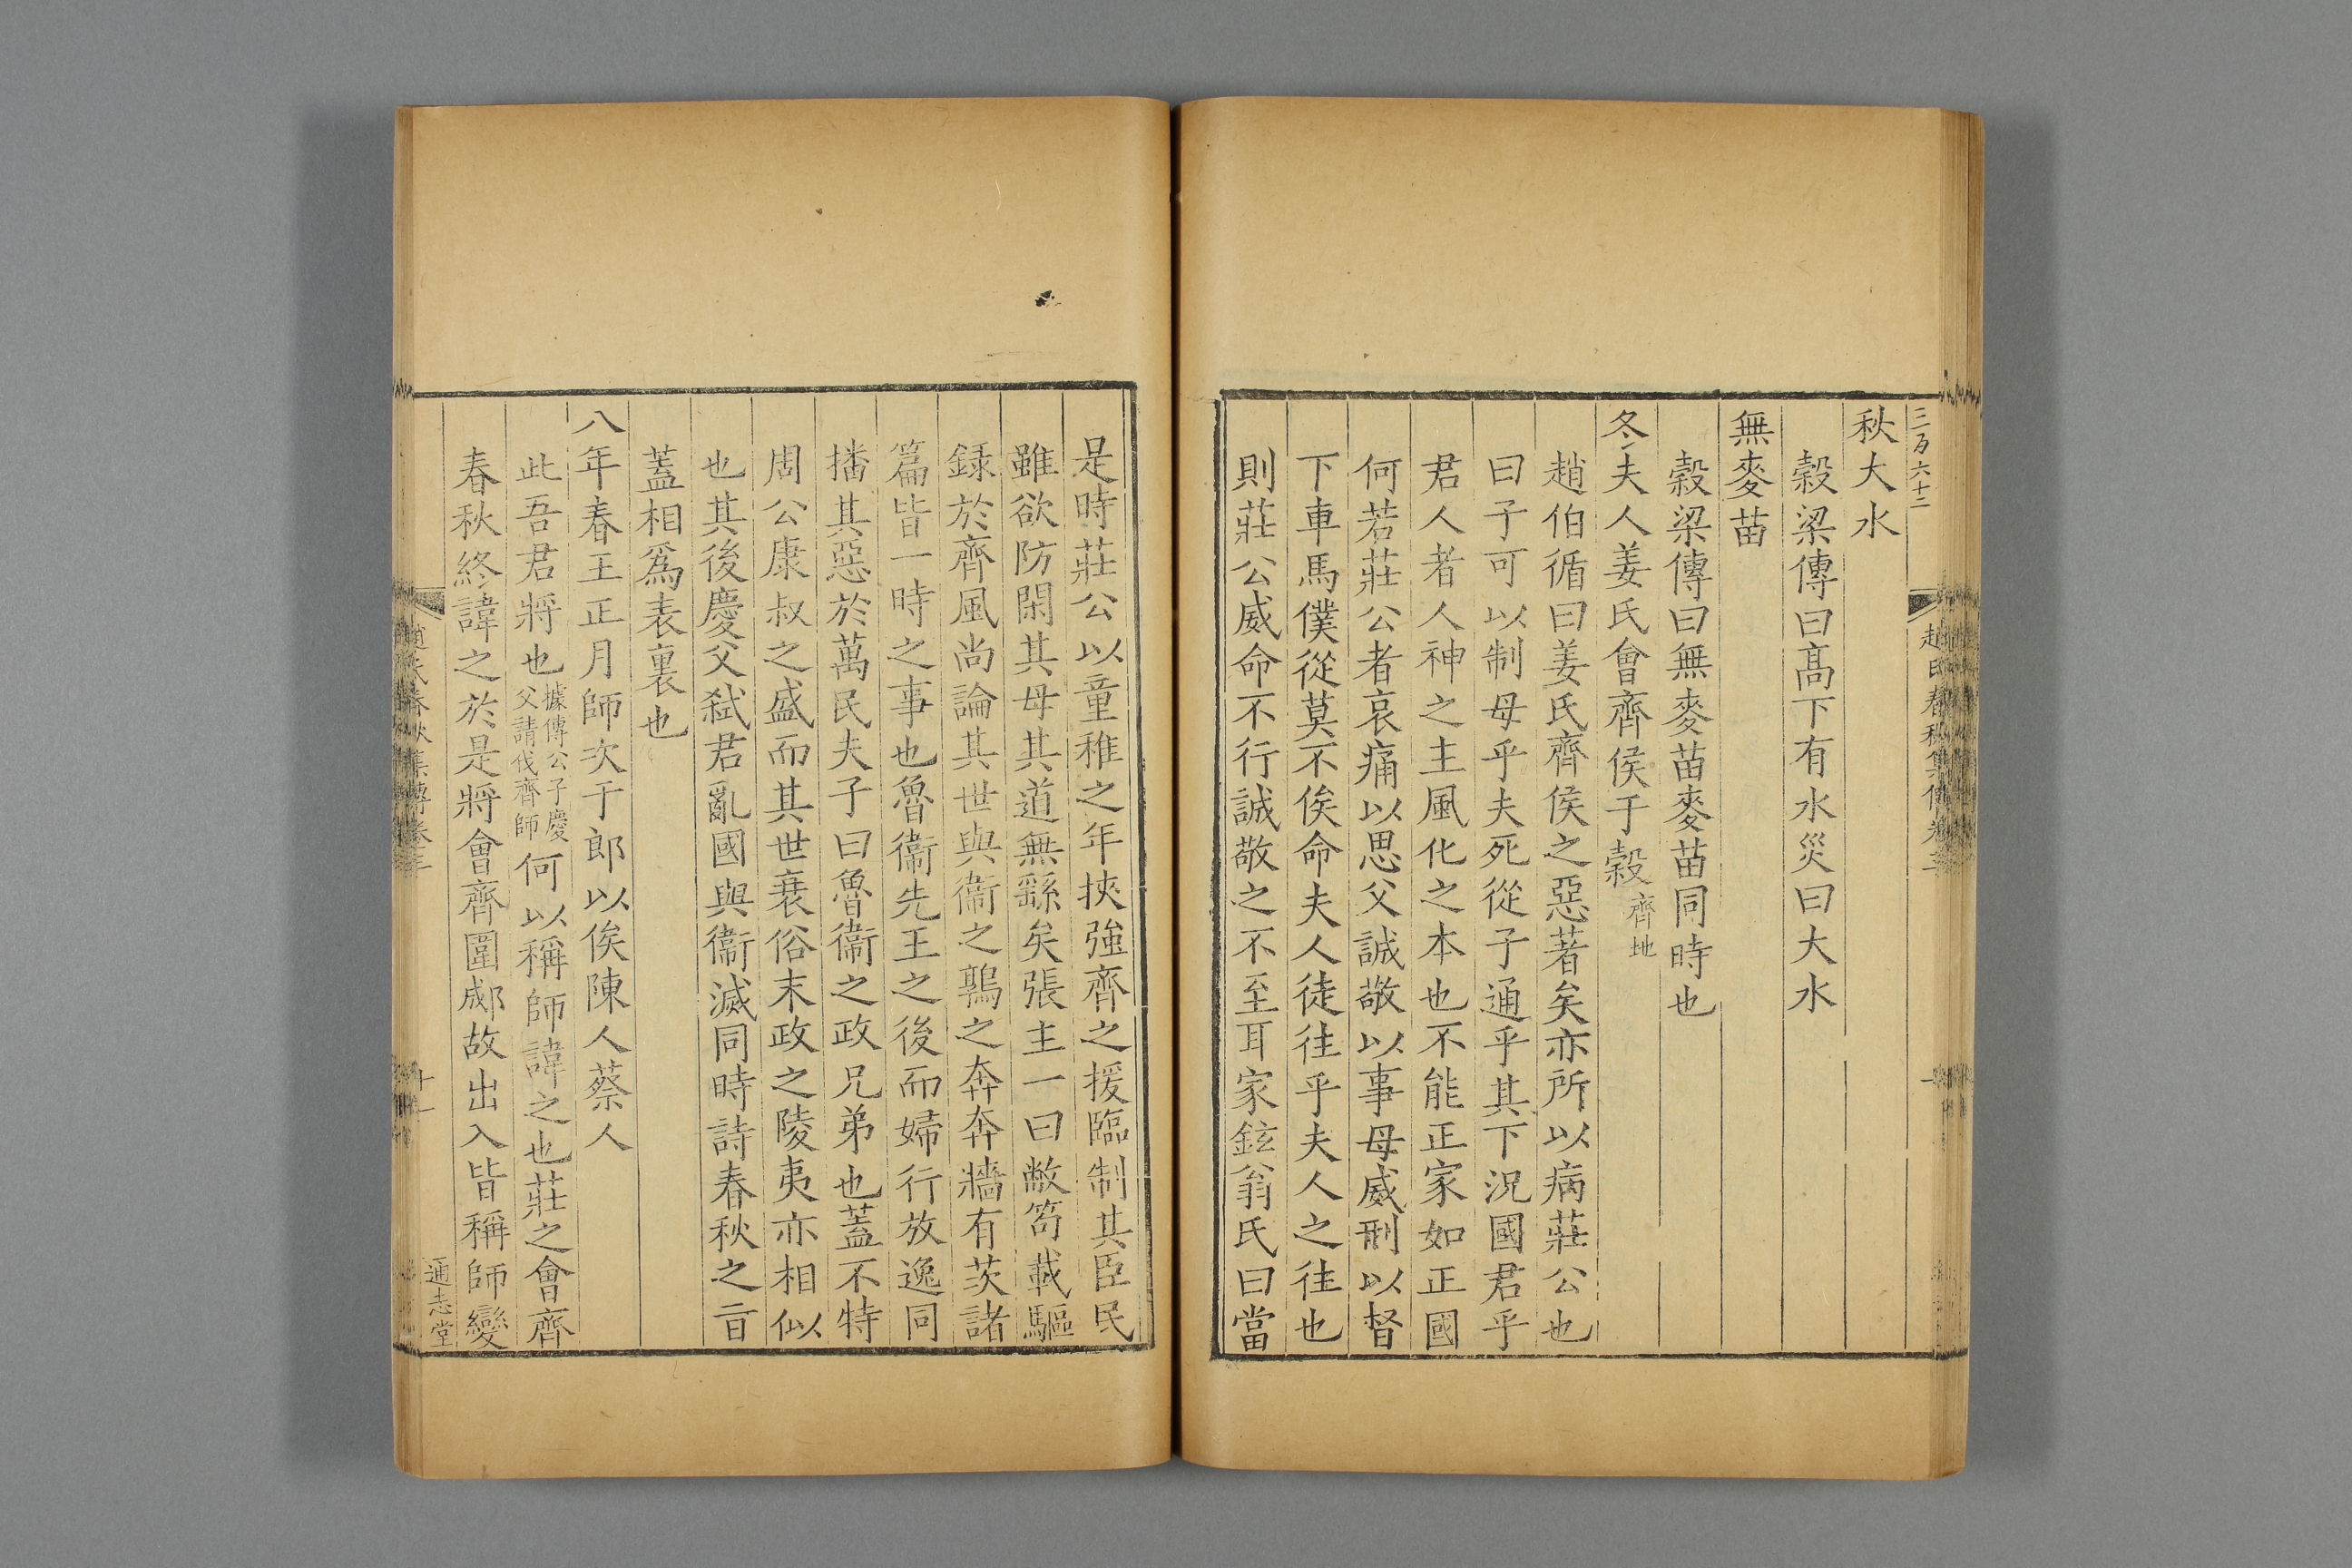 三百六十二
秋大水
穀梁傳曰髙下有水災曰大水
無麥苗
穀梁傳曰無麥苗麥苗同時也
冬夫人姜氏會齊侯于穀齊地
趙伯循曰姜氏齊侯之惡著矣亦所以病莊公也
曰子可以制母乎夫死從子通乎其下況國君乎
君人者人神之主風化之本也不能正家如正國
何若莊公者哀痛以思父誠敬以事母威刑以督
下車馬僕從莫不俟命夫人徒往乎夫人之往也
則莊公威命不行誠敬之不至耳家鉉翁氏曰當
是時莊公以童稚之年挾強齊之援臨制其臣民
雖欲防閑其母其道無繇矣張主一曰敝笱載驅
録於齊風尚論其世與衞之鶉之奔奔牆有茨諸
篇皆一時之事也魯衞先王之後而婦行放逸同
播其惡於萬民夫子曰魯衞之政兄弟也蓋不特
周公康叔之盛而其世衰俗末政之陵夷亦相似
也其後慶父弑君亂國與衞滅同時詩春秋之㫖
蓋相爲表裏也
八年春王正月師次于郎以俟陳人蔡人
此吾君將也據傳公子慶父請伐齊師何以稱師諱之也莊之會齊
春秋終諱之於是將會齊圍郕故出入皆稱師變
趙氏春秋集傳卷三
十一
通志堂